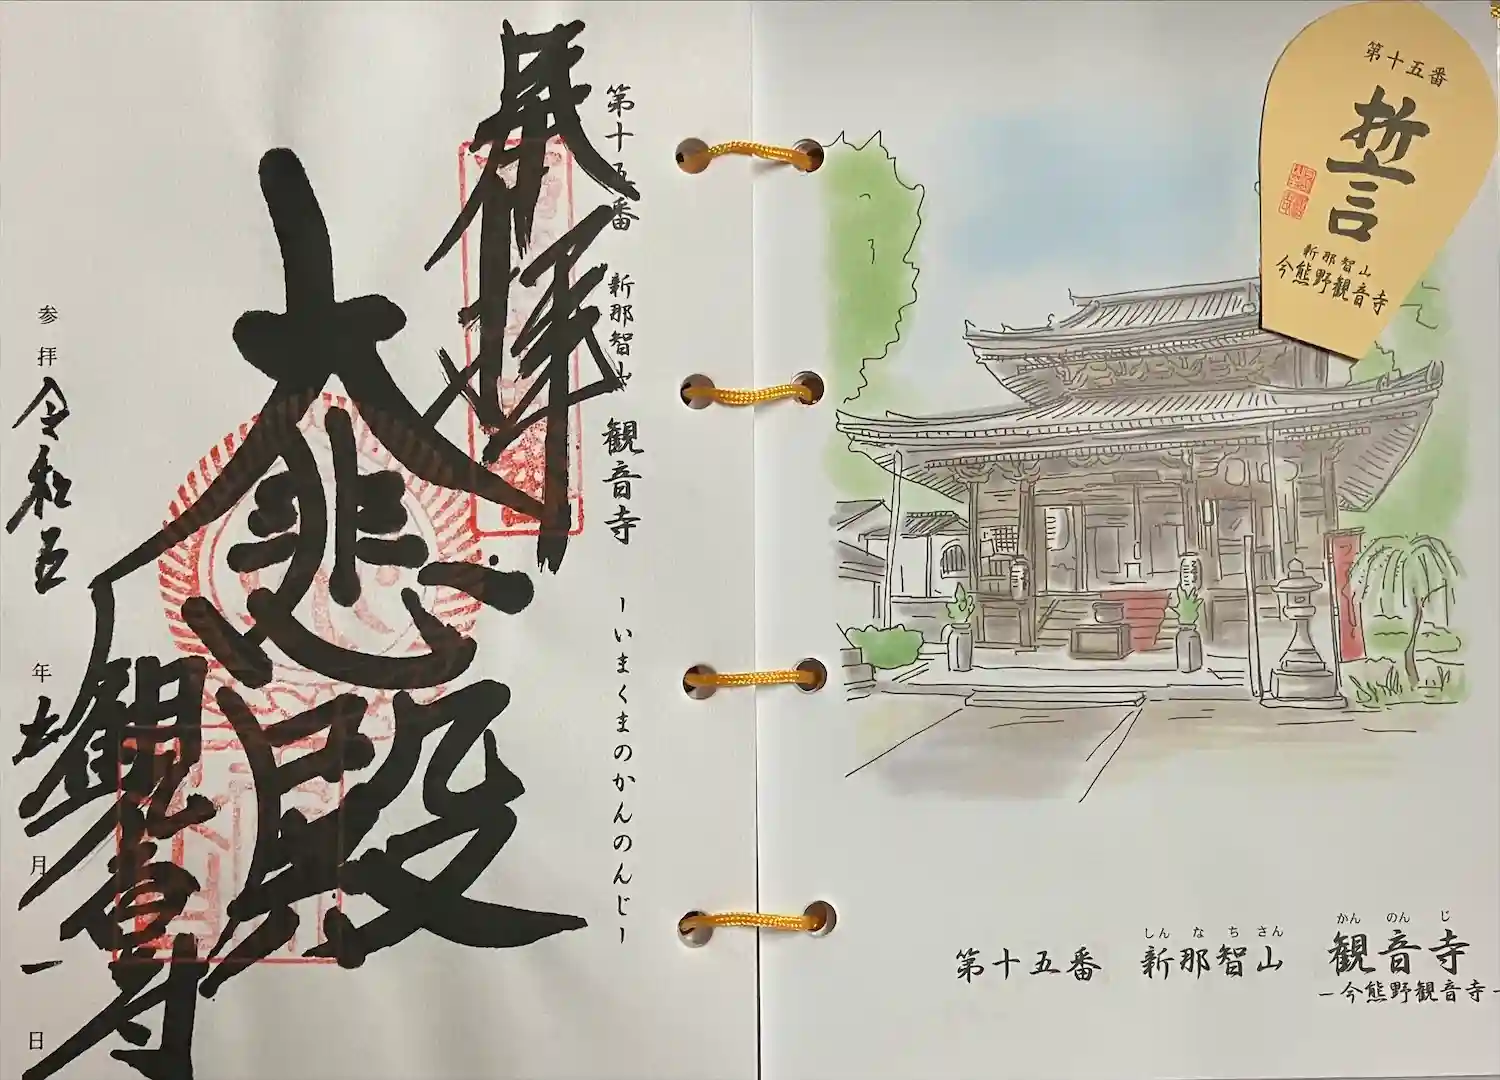 第十五番 新那智山 観音寺 -いまくまのかんのんじ-
奉拝
大悲殿
観音寺
参拝 令和五年十一月一日
第十五番
誓
新那智山
今熊野観音寺
しんなちさん かんのんじ
第十五番 新那智山 観音寺
-今熊野観音寺-